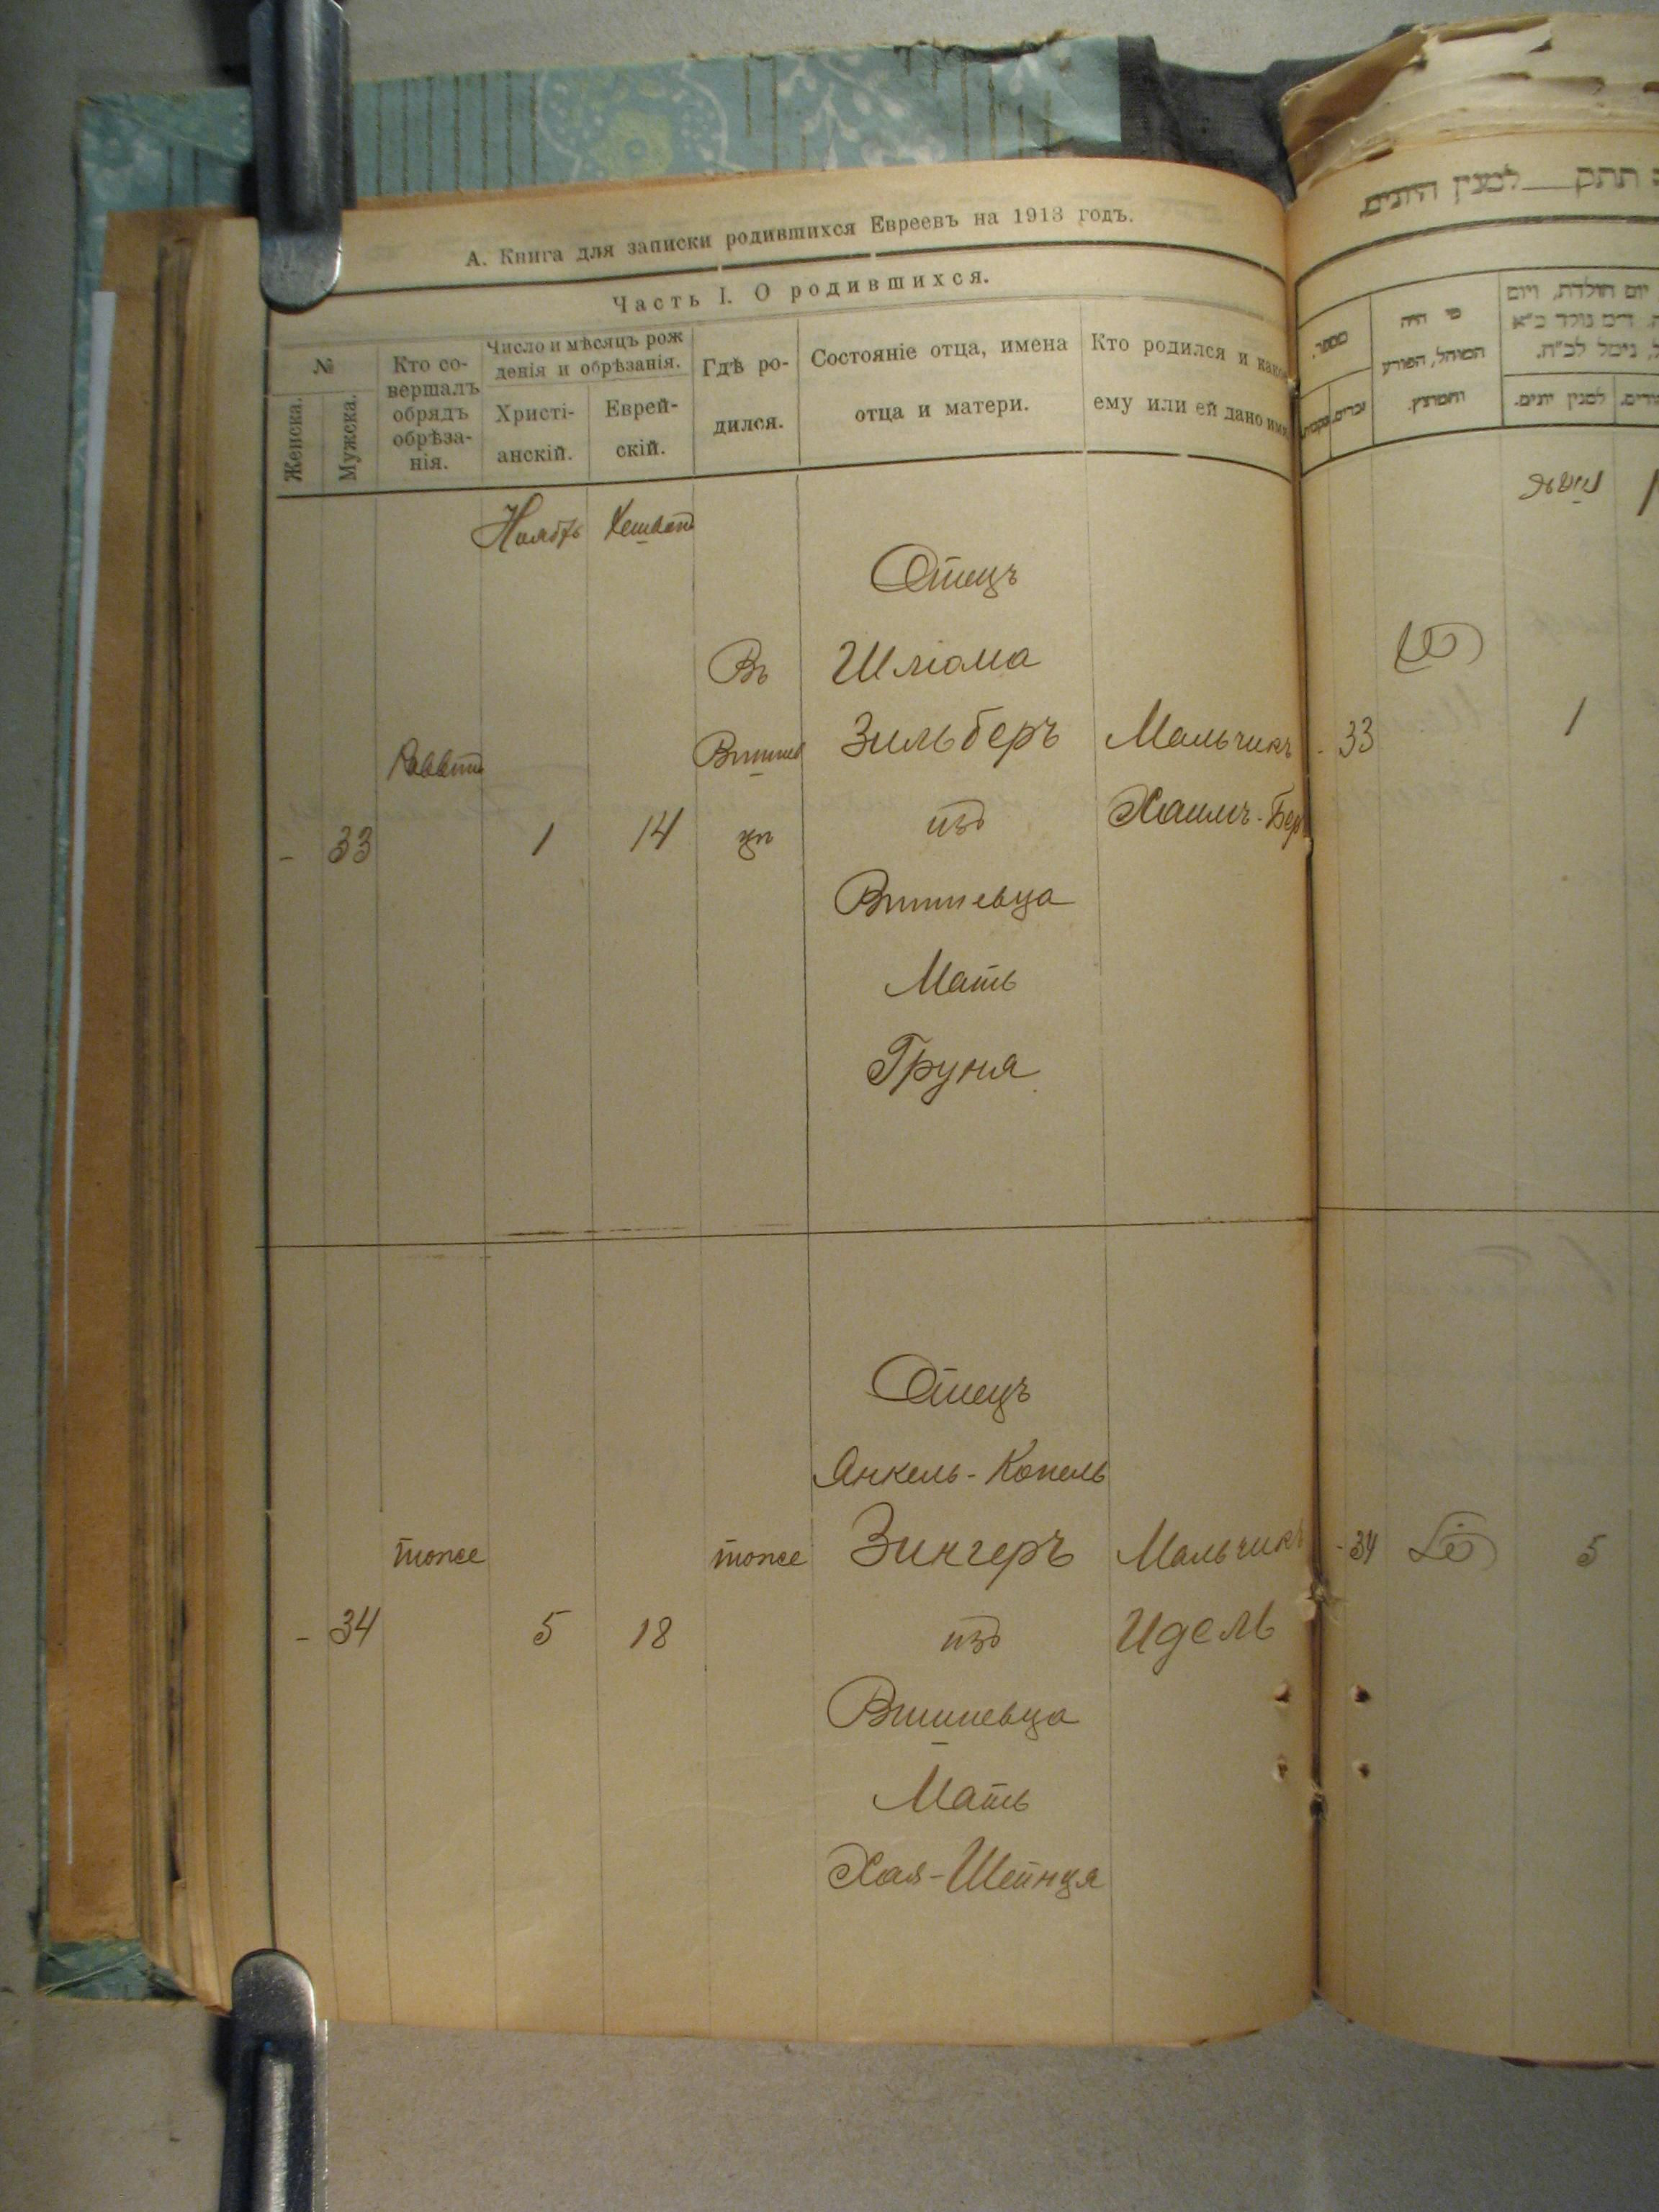 А. Книга для записки родившихся Евреевъ на 1913 годъ.
Часть I. О родившихся.
№
Женска.
Мужска.
Кто со-
вершалъ
обрядъ
обрѣза-
нія.
Число и мѣсяцъ рож
денія и обрѣзанія.
Христі-
анскій.
Еврей-
скій.
Гдѣ ро-
дился.
Состояніе отца, имена
отца и матери.
Кто родился и како
ему или ей дано имя
Ноябрь
Хешванъ
- 33
Раввинъ
1
14
Въ
Вишнев
цѣ
Отецъ
Шліома
Зильберъ
изъ
Вишневца
Мать
Груня
Мальчикъ
Хаимъ-Бер
- 34
тоже
5
18
тоже
Отецъ
Янкель-Копель
Зингеръ
изъ
Вишневца
Мать
Хая-Шейнця
Мальчикъ
Идель
תתק למנין היונים
מספר.
זכרים.
נקבות.
מי היה
המוהל, הפורע
והמוצץ.
יום הולדת, ויום
למנין יונים.
- 33
1
- 34
5